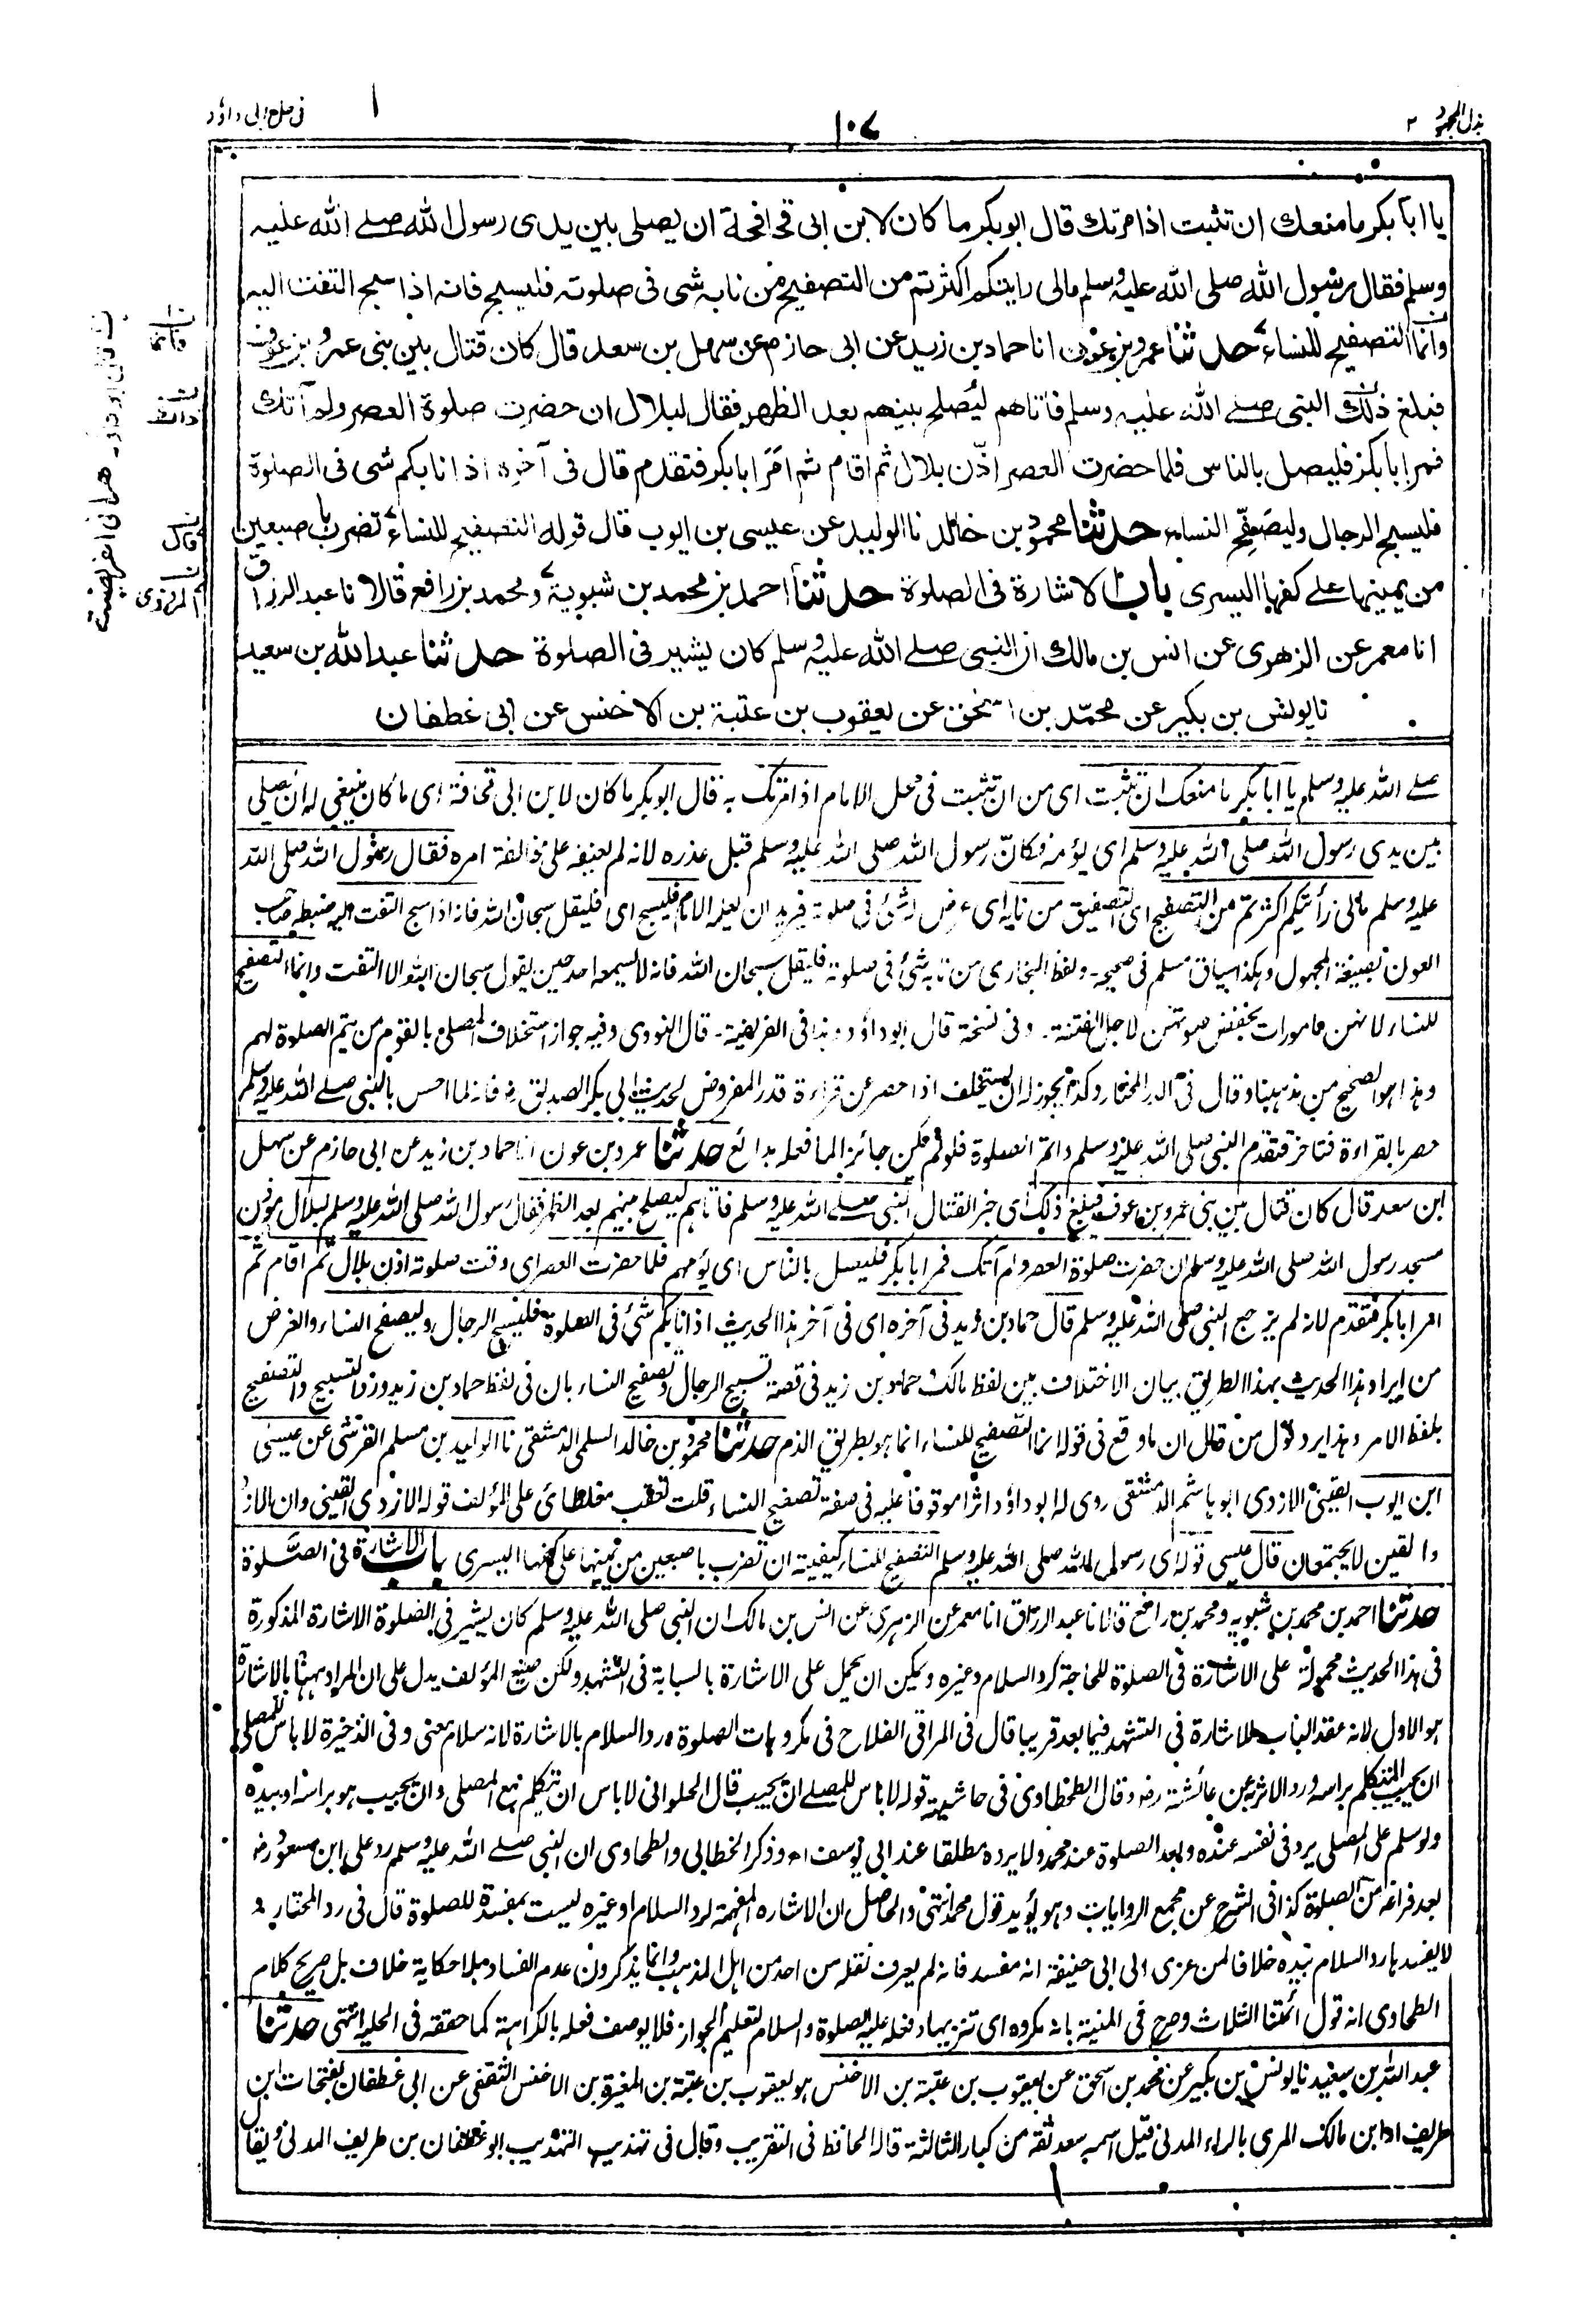 بذل المجهود ٢
١٠٧
١
فی حل ابی داؤد
یا ابا بکر ما منعک ان تثبت اذ امرتک قال ابو بکر ما کان لابن ابی قحافة ان یصلی بین یدی رسول الله صلے الله علیہ
وسلم فقال رسول الله صلی الله علیہ وسلم مالی رایتکم اکثرتم من التصفیح من نابہ شی فی صلوتہ فلیسبح فانہ اذا سبح التفت الیہ
وانما التصفیح للنساء حدثنا عمرو بن عون انا حماد بن زید عن ابی حازم عن سهل بن سعد قال کان قتال بین بنی عمرو بن عوف
فبلغ ذلک النبی صلے الله علیہ وسلم فاتاهم لیُصلح بینهم بعد الظهر فقال لبلال ان حضرت صلوة العصر ولم آتک
فمر ابا بکر فلیصل بالناس فلما حضرت العصر اذّن بلال ثم اقام ثم اَمَرَ ابا بکر فتقدم قال فی آخرہ اذا نابکم شی فی الصلوة
فلیسبح الرجال ولیصَفِّح النساء حدثنا محمود بن خالد نا الولید عن عیسی بن ایوب قال قولہ التصفیح للنساء تضرب باصبعین
من یمینها علے کفها الیسری باب الاشارة فی الصلوة حدثنا احمد بن محمد بن شبویة ومحمد بن رافع قالا نا عبد الرزاق
انا معمر عن الزهری عن انس بن مالک ان النبی صلے الله علیہ وسلم کان یشیر فی الصلوة حدثنا عبد الله بن سعید
نا یونس بن بکیر عن محمّد بن اسحٰق عن یعقوب بن عتبة بن الاخنس عن ابی غطفان
فانما
قال
المروزی
قال ابو داؤد هذا فی الفریضة
صلے الله علیہ وسلم یا ابا بکر ما منعک ان تثبت ای من ان تثبت فی محل الامام اذ امرتک بہ قال ابو بکر ما کان لابن ابی قحافة ای ما کان ینبغی لہ ان یصلی
بین یدی رسول الله صلی الله علیہ وسلم ای یؤمہ وکانّ رسول الله صلی الله علیہ وسلم قبل عذرہ لانہ لم یعنفہ علی مخالفة امرہ فقال رسول الله صلی الله
علیہ وسلم مالی رأیتکم اکثرتم من التصفیح ای التصفیق من نابہ ای عرض لہ شئ فی صلوتہ فیرید ان یعلم الامام فلیسبح ای فلیقل سبحان الله فانہ اذا سبح التفت الیہ ضبطہ صاحب
العون بصیغة المجهول وهکذا سیاق مسلم فی صحیحہ۔ ولفظ البخاری من نابہ شئ فی صلوتہ فلیقل سبحان الله فانہ لا یسمعہ احد حین یقول سبحان الله الا التفت وانما التصفیح
للنساء لانهن مامورات بخفض صوتهن لاجل الفتنة۔ وفی نسخة قال ابو داؤد وهذا فی الفریضة۔ قال النووی وفیہ جواز استخلاف المصلی بالقوم من یتم الصلوة لهم
وهذا هو الصحیح من مذهبنا وقال فی الدر المختار وکذا یجوز لہ ان یستخلف اذا حصر عن قراءة قدر المفروض لحدیث ابی بکر الصدیق رضہ فانہ لما احس بالنبی صلے الله علیہ وسلم
حصر بالقراءة فتاخر فتقدم النبی صلی الله علیہ وسلم واتم الصلوة فلو لم یکن جائزا لما فعلہ بدائع حدثنا عمرو بن عون انا حماد بن زید عن ابی حازم عن سهل
ابن سعد قال کان قتال بین بنی عمرو بن عوف فبلغ ذلک ای خبر القتال النبی صلے الله علیہ وسلم فاتاهم لیصلح بینهم بعد الظهر فقال رسول الله صلی الله علیہ وسلم لبلال مؤذن
مسجد رسول الله صلی الله علیہ وسلم ان حضرت صلوة العصر ولم آتک فمر ابا بکر فلیصل بالناس ای یؤمهم فلما حضرت العصر ای وقت صلوتہ اذن بلال ثم اقام ثم
امر ابا بکر فتقدم لانہ لم یرجع النبی صلی الله علیہ وسلم قال حماد بن زید فی آخرہ ای فی آخر هذا الحدیث اذا نابکم شئ فی الصلوة فلیسبح الرجال ولیصفح النساء والغرض
من ایراد هذا الحدیث بهذا الطریق بیان الاختلاف بین لفظ مالک وحماد بن زید فی قصة تسبیح الرجال وتصفیح النساء بان فی لفظ حماد بن زید ورد التسبیح والتصفیح
بلفظ الامر وهذا یرد قول من قال ان ما وقع فی قولہ انما التصفیح للنساء انما هو بطریق الذم حدثنا محمود بن خالد السلمی الدمشقی نا الولید بن مسلم القرشی عن عیسی
ابن ایوب القینی الازدی ابو هاشم الدمشقی روی لہ ابو داؤد اثرا موقوفا علیہ فی صفة تصفیح النساء قلت تعقب مغلطائی علی المؤلف قولہ الازدی القینی وان الازد
والقین لا یجتمعان قال عیسی قولہ ای رسول الله صلی الله علیہ وسلم التصفیح للنساء کیفیتہ ان تضرب باصبعین من یمینها علی کفها الیسری باب الاشارة فی الصلوة
حدثنا احمد بن محمد بن شبویہ ومحمد بن رافع قالا نا عبد الرزاق انا معمر عن الزهری عن انس بن مالک ان النبی صلی الله علیہ وسلم کان یشیر فی الصلوة الاشارة المذکورة
فی هذا الحدیث محمولة علی الاشارة فی الصلوة للحاجة کرد السلام وغیرہ ویمکن ان یحمل علی الاشارة بالسبابة فی التشهد ولکن صنیع المؤلف یدل علی ان المراد ههنا بالاشارة
هو الاول لانہ عقد الباب للاشارة فی التشهد فیما بعد قریبا قال فی المراقی الفلاح فی مکروهات الصلوة ورد السلام بالاشارة لانہ سلام معنی وفی الذخیرة لا باس للمصلی
ان یجیب المتکلم براسہ ورد الاثر بہ عن عائشة رضہ وقال الطحطاوی فی حاشیتہ قولہ لا باس للمصلے ان یجیب قال الحلوانی لا باس ان یتکلم مع المصلی وان یجیب هو براسہ او بیدہ
ولو سلم علی المصلی یرد فی نفسہ عندہ وبعد الصلوة عند محمد ولا یردہ مطلقا عند ابی یوسف اه وذکر الخطابی والطحاوی ان النبی صلے الله علیہ وسلم رد علی ابن مسعود رضہ
بعد فراغہ من الصلوة کذا فی الشرح عن مجمع الروایات وهو یؤید قول محمد انتهی والحاصل ان الاشارة المفهمة لرد السلام او غیرہ لیست بمفسدة للصلوة قال فی رد المحتار و
لا یفسدها رد السلام بیدہ خلافا لمن عزی الی ابی حنیفة انہ مفسد فانہ لم یعرف نقلہ من احد من اهل المذهب وانما یذکرون عدم الفساد بلا حکایة خلاف بل صریح کلام
الطحاوی انہ قول ائمتنا الثلاث وصرح فی المنیة بانہ مکروہ ای تنزیها وفعلہ علیہ الصلوة والسلام لتعلیم الجواز فلا یوصف فعلہ بالکراهة کما حققہ فی الحلیة انتهی حدثنا
عبد الله بن سعید نا یونس بن بکیر عن محمد بن اسحق عن یعقوب بن عتبة بن الاخنس هو یعقوب بن عتبة بن المغیرة بن الاخنس الثقفی عن ابی غطفان بفتحات ابن
طریف او ابن مالک المری بالراء المدنی قیل اسمہ سعد ثقة من کبار الثالثة قالہ الحافظ فی التقریب وقال فی تهذیب التهذیب ابو غطفان بن طریف المدنی ویقال